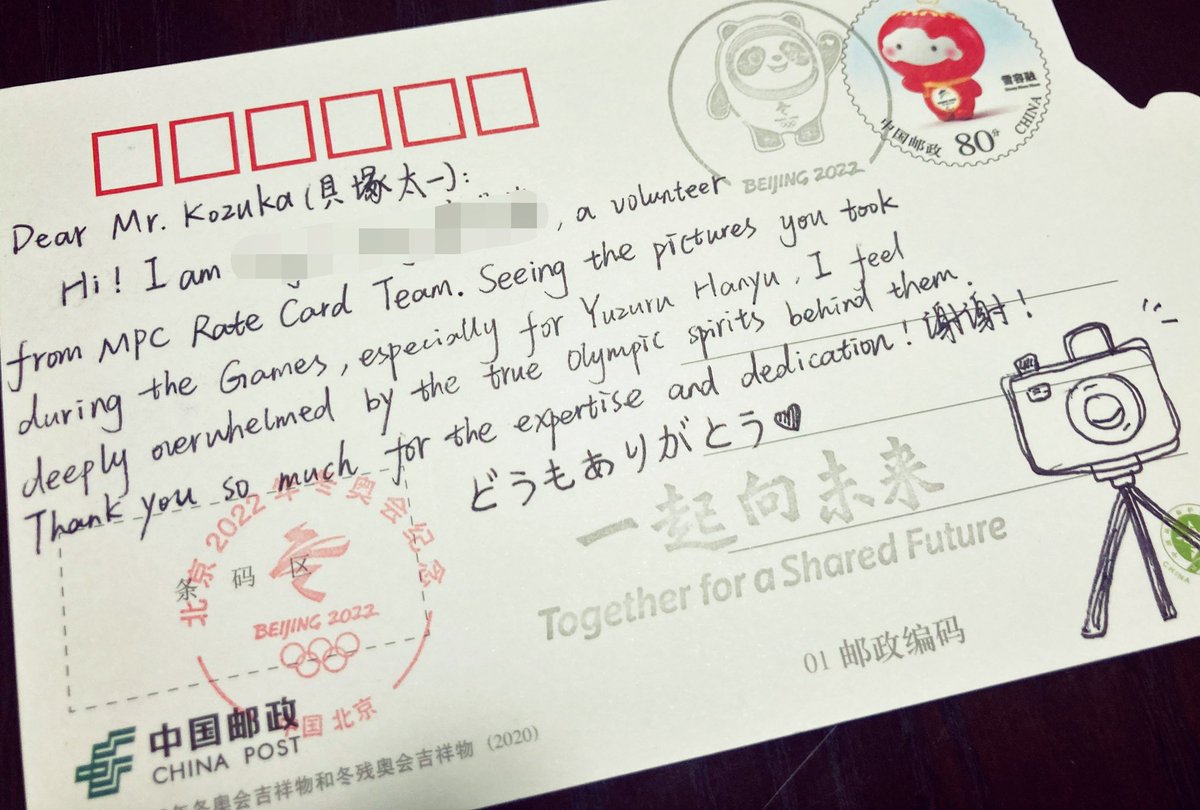 BEIJING 2022
雪容融
Shuey Rhon Rhon
中国邮政 80分 CHINA
Dear Mr. Kozuka (貝塚太一):
Hi! I am , a volunteer
from MPC Rate Card Team. Seeing the pictures you took
during the Games, especially for Yuzuru Hanyu, I feel
deeply overwhelmed by the true Olympic spirits behind them.
Thank you so much for the expertise and dedication! 谢谢!
どうもありがとう
一起向未来
Together for a Shared Future
北京2022年冬奥会纪念
条码区
BEIJING 2022
中国 北京
01 邮政编码
CHINA
中国邮政
CHINA POST
年冬奥会吉祥物和冬残奥会吉祥物 (2020)